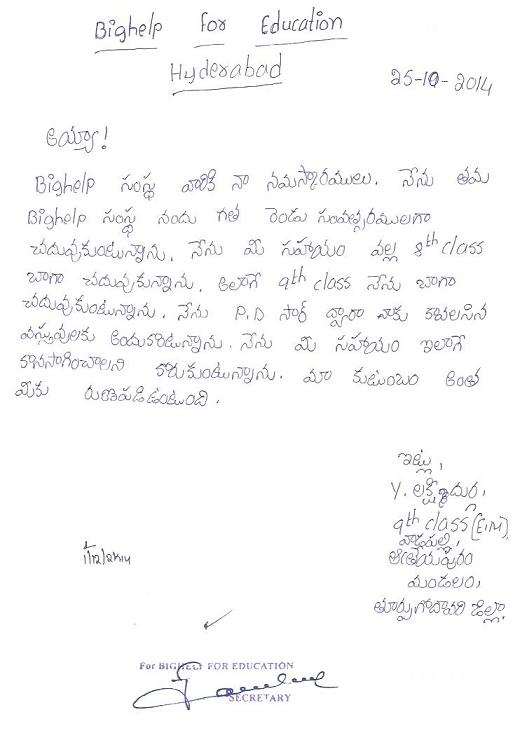 Bighelp for Education
Hyderabad
25-10-2014
అయ్యా!
Bighelp సంస్థ వారికి నా నమస్కారములు. నేను తమ
Bighelp సంస్థ నందు గత రెండు సంవత్సరములుగా
చదువుకుంటున్నాను. నేను మీ సహాయం వల్ల 8th class
బాగా చదువుకున్నాను. అలాగే 9th class నేను బాగా
చదువుకుంటున్నాను. నేను P.D సార్ ద్వారా నాకు కావలసిన
వస్తువులకు అందుకుంటున్నాను. నేను మీ సహాయం ఇలాగే
కొనసాగించాలని కోరుకుంటున్నాను. మా కుటుంబం అంత
మీకు రుణపడి ఉంటుంది.
ఇట్లు,
Y. లక్ష్మీదుర్గ,
9th class (E.M)
వాడపల్లి,
ఆత్రేయపురం
మండలం,
తూర్పుగోదావరి జిల్లా.
1/12/2K14
For BIGHELP FOR EDUCATION
SECRETARY